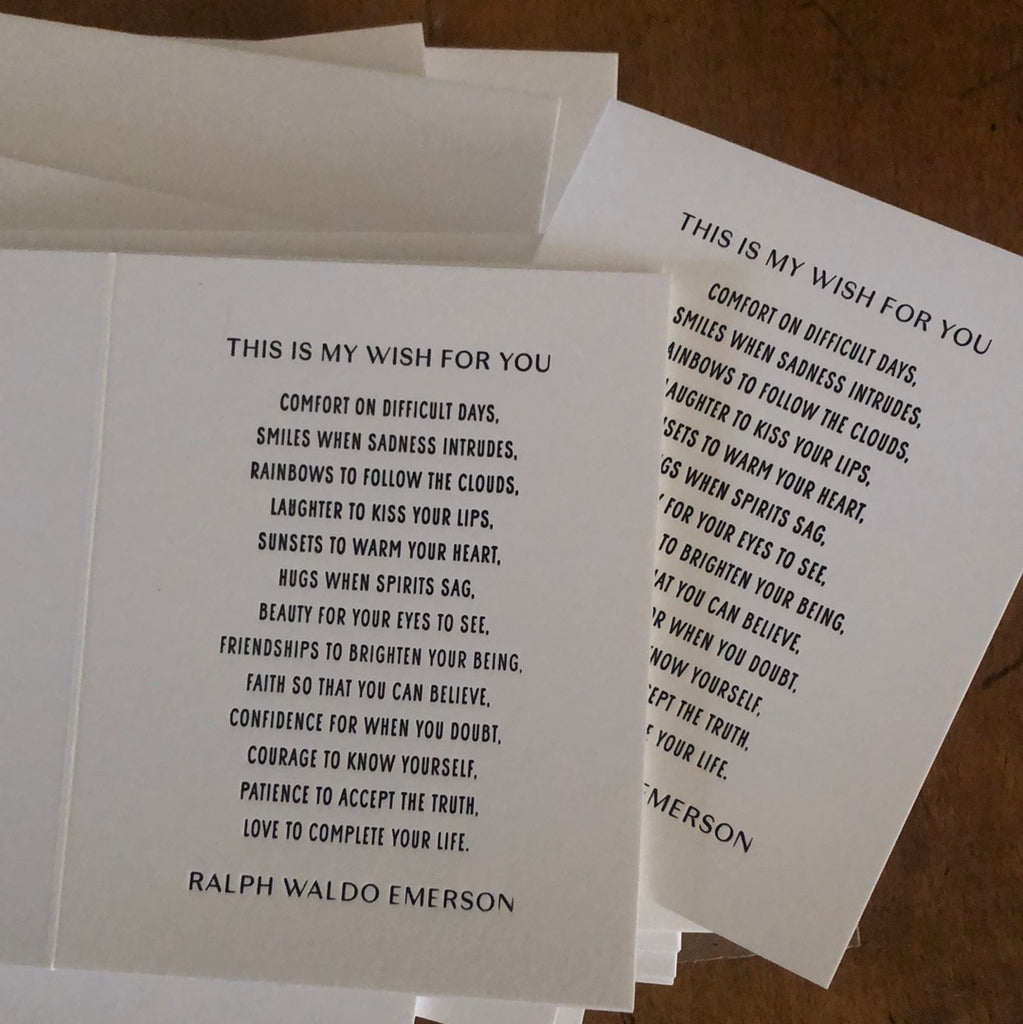 THIS IS MY WISH FOR YOU
COMFORT ON DIFFICULT DAYS,
SMILES WHEN SADNESS INTRUDES,
RAINBOWS TO FOLLOW THE CLOUDS,
LAUGHTER TO KISS YOUR LIPS,
SUNSETS TO WARM YOUR HEART,
HUGS WHEN SPIRITS SAG,
BEAUTY FOR YOUR EYES TO SEE,
FRIENDSHIPS TO BRIGHTEN YOUR BEING,
FAITH SO THAT YOU CAN BELIEVE,
CONFIDENCE FOR WHEN YOU DOUBT,
COURAGE TO KNOW YOURSELF,
PATIENCE TO ACCEPT THE TRUTH,
LOVE TO COMPLETE YOUR LIFE.
RALPH WALDO EMERSON
THIS IS MY WISH FOR YOU
COMFORT ON DIFFICULT DAYS,
SMILES WHEN SADNESS INTRUDES,
AINBOWS TO FOLLOW THE CLOUDS,
LAUGHTER TO KISS YOUR LIPS,
SETS TO WARM YOUR HEART,
GS WHEN SPIRITS SAG,
FOR YOUR EYES TO SEE,
TO BRIGHTEN YOUR BEING,
AT YOU CAN BELIEVE,
R WHEN YOU DOUBT,
NOW YOURSELF,
EPT THE TRUTH,
YOUR LIFE.
EMERSON